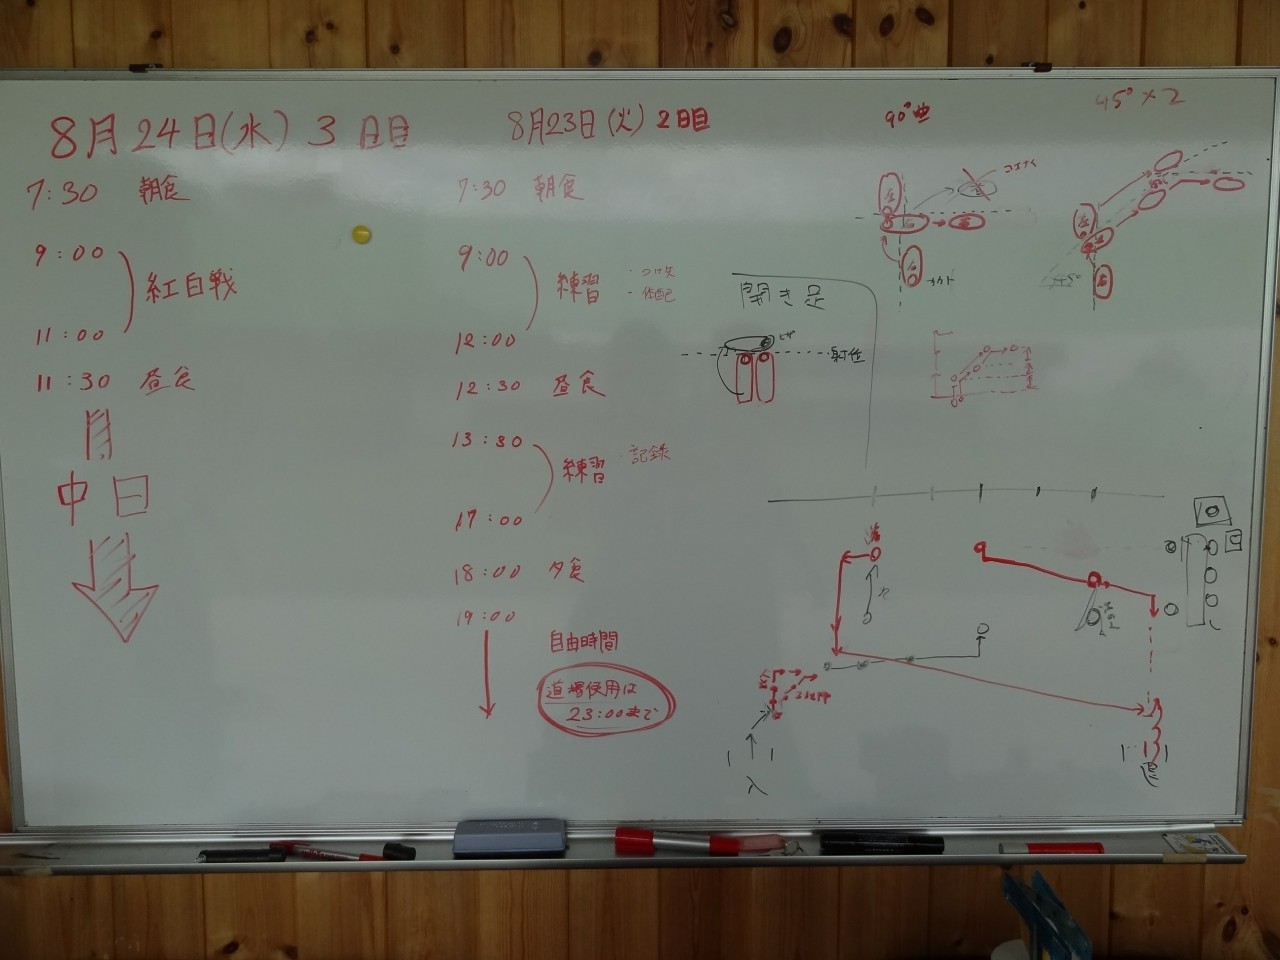 8月24日(水) 3日目
7:30 朝食
9:00
紅白戦
11:00
11:30 昼食
中日
8月23日(火) 2日目
7:30 朝食
9:00
練習
・体配
12:00
12:30 昼食
13:30
練習 記録
17:00
18:00 夕食
19:00
自由時間
道場使用は
23:00まで
90°
45°×2
45°
開き足
ヒザ
射位
入
退